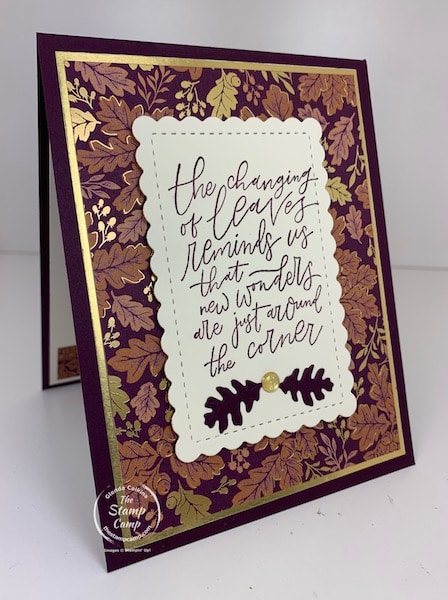 the changing
of leaves
reminds us
that wonders
new are just around
the corner
Glenda Calkins
The
Stamp
Camp
thestampcamp.com
Images © Stampin' Up!